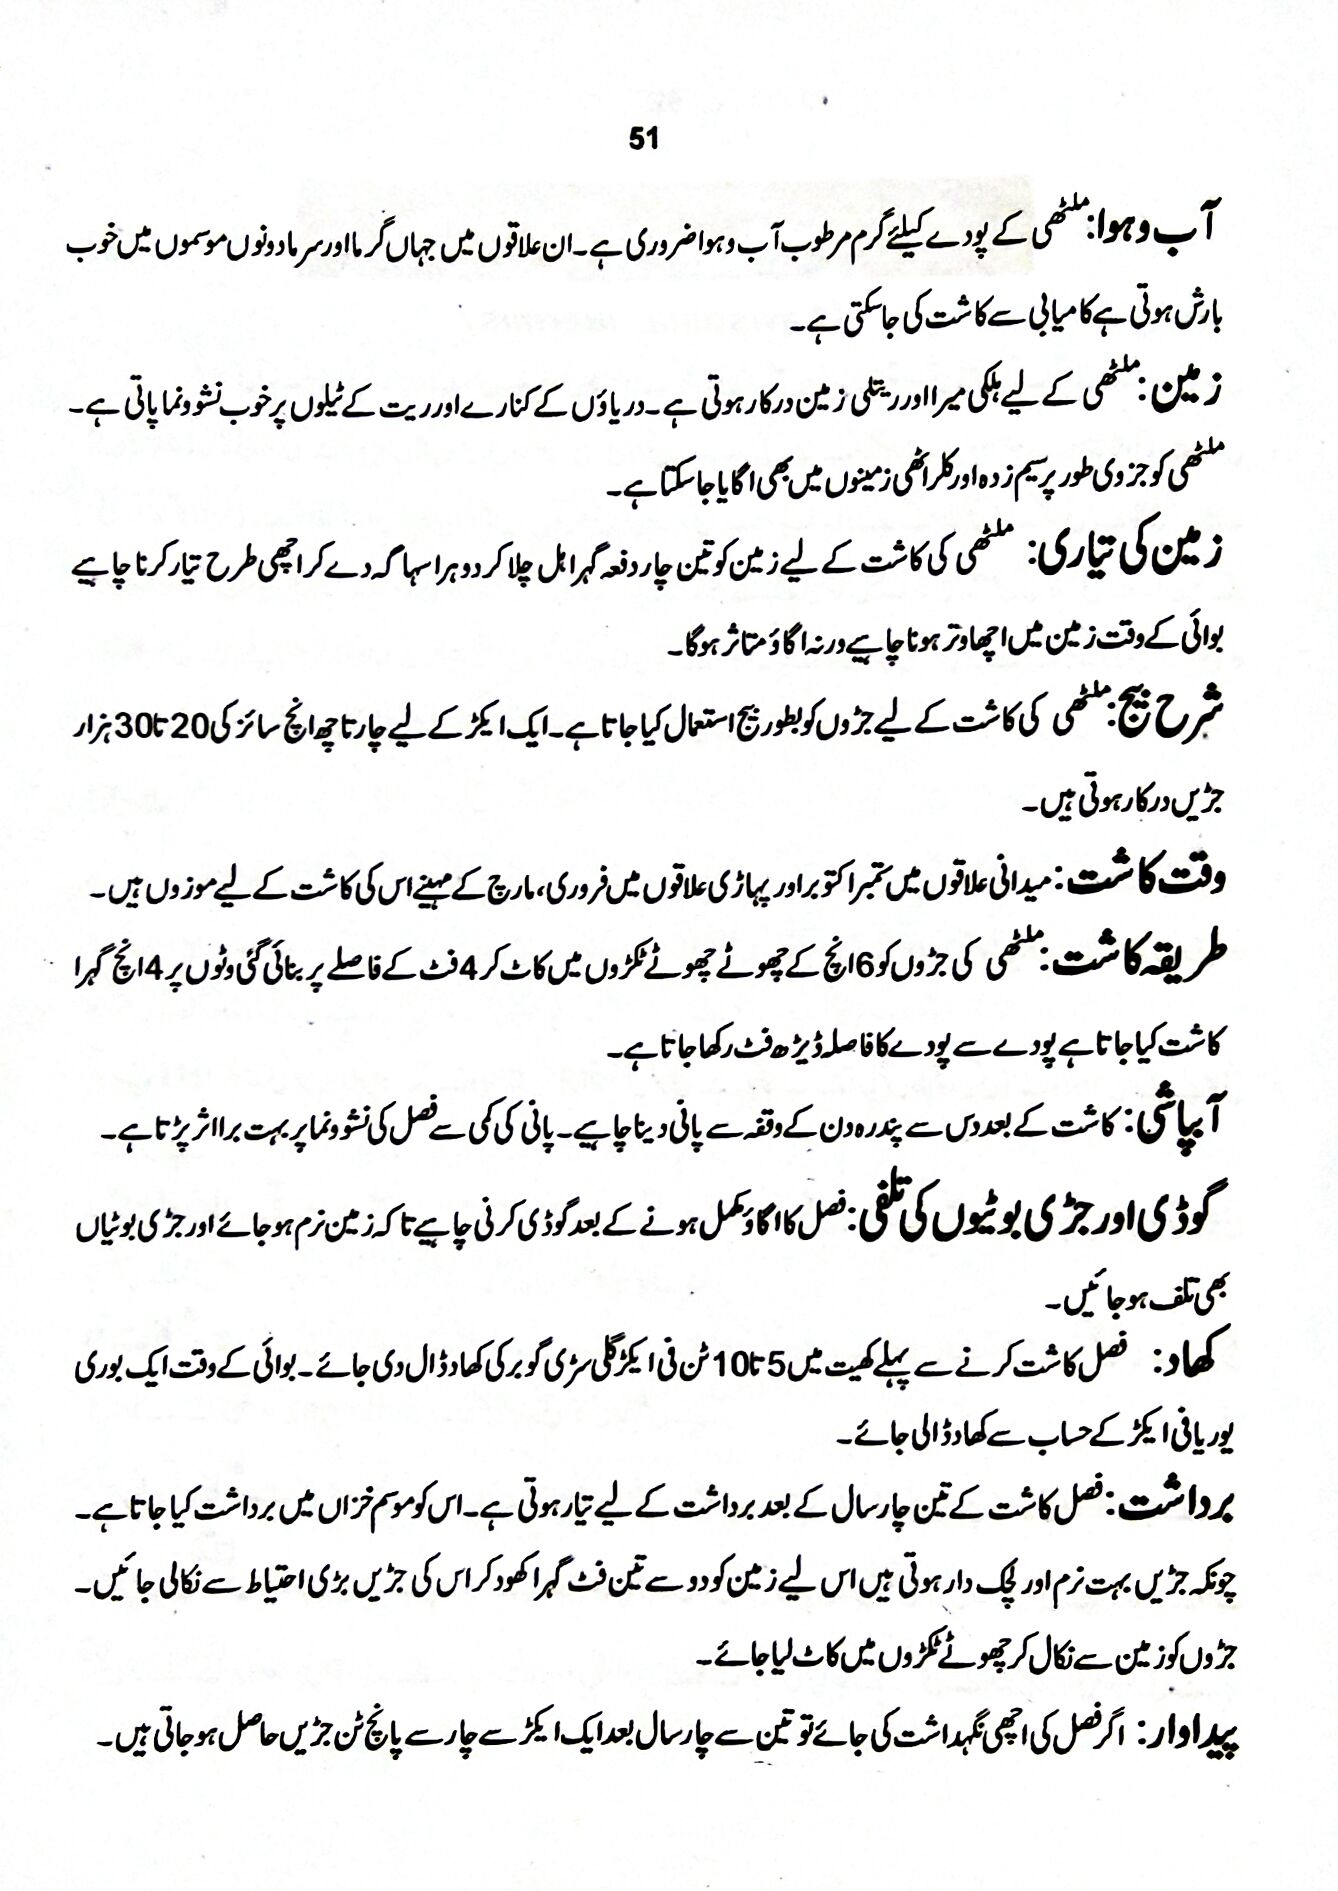 51
آب و ہوا: ملٹھی کے پودے کیلئے گرم مرطوب آب و ہوا ضروری ہے۔ ان علاقوں میں جہاں گرما اور سرما دونوں موسموں میں خوب
بارش ہوتی ہے کامیابی سے کاشت کی جاسکتی ہے۔
زمین: ملٹھی کے لیے ہلکی میرا اور ریتلی زمین درکار ہوتی ہے۔ دریاؤں کے کنارے اور ریت کے ٹیلوں پر خوب نشوونما پاتی ہے۔
ملٹھی کو جزوی طور پر سیم زدہ اور کلراٹھی زمینوں میں بھی اگایا جاسکتا ہے۔
زمین کی تیاری: ملٹھی کی کاشت کے لیے زمین کو تین چار دفعہ گہرا ہل چلا کر دوہرا سہاگہ دے کر اچھی طرح تیار کرنا چاہیے
بوائی کے وقت زمین میں اچھا وتر ہونا چاہیے ورنہ اگاؤ متاثر ہوگا۔
شرح بیج: ملٹھی کی کاشت کے لیے جڑوں کو بطور بیج استعمال کیا جاتا ہے۔ ایک ایکڑ کے لیے چار تا چھ انچ سائز کی 20 تا 30 ہزار
جڑیں درکار ہوتی ہیں۔
وقت کاشت: میدانی علاقوں میں ستمبر اکتوبر اور پہاڑی علاقوں میں فروری، مارچ کے مہینے اس کی کاشت کے لیے موزوں ہیں۔
طریقہ کاشت: ملٹھی کی جڑوں کو 6 انچ کے چھوٹے چھوٹے ٹکڑوں میں کاٹ کر 4 فٹ کے فاصلے پر بنائی گئی وٹوں پر 4 انچ گہرا
کاشت کیا جاتا ہے پودے سے پودے کا فاصلہ ڈیڑھ فٹ رکھا جاتا ہے۔
آبپاشی: کاشت کے بعد دس سے پندرہ دن کے وقفہ سے پانی دینا چاہیے۔ پانی کی کمی سے فصل کی نشوونما پر بہت برا اثر پڑتا ہے۔
گوڈی اور جڑی بوٹیوں کی تلفی: فصل کا اگاؤ مکمل ہونے کے بعد گوڈی کرنی چاہیے تاکہ زمین نرم ہو جائے اور جڑی بوٹیاں
بھی تلف ہو جائیں۔
کھاد: فصل کاشت کرنے سے پہلے کھیت میں 5 تا 10 ٹن فی ایکڑ گلی سڑی گوبر کی کھاد ڈال دی جائے۔ بوائی کے وقت ایک بوری
یوریا فی ایکڑ کے حساب سے کھاد ڈالی جائے۔
برداشت: فصل کاشت کے تین چار سال کے بعد برداشت کے لیے تیار ہوتی ہے۔ اس کو موسم خزاں میں برداشت کیا جاتا ہے۔
چونکہ جڑیں بہت نرم اور لچک دار ہوتی ہیں اس لیے زمین کو دو سے تین فٹ گہرا کھود کر اس کی جڑیں بڑی احتیاط سے نکالی جائیں۔
جڑوں کو زمین سے نکال کر چھوٹے ٹکڑوں میں کاٹ لیا جائے۔
پیداوار: اگر فصل کی اچھی نگہداشت کی جائے تو تین سے چار سال بعد ایک ایکڑ سے چار سے پانچ ٹن جڑیں حاصل ہو جاتی ہیں۔